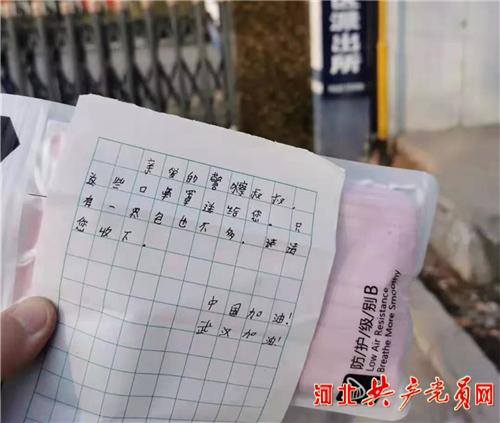 派出所
亲爱的警察叔叔,
这些口罩送给您.只
有一包也不多.请
您收下.
中国加油!
武汉加油!
防/护/级/别B
Low Air Resistance
Breathe More Smoothly
河北共产党员网